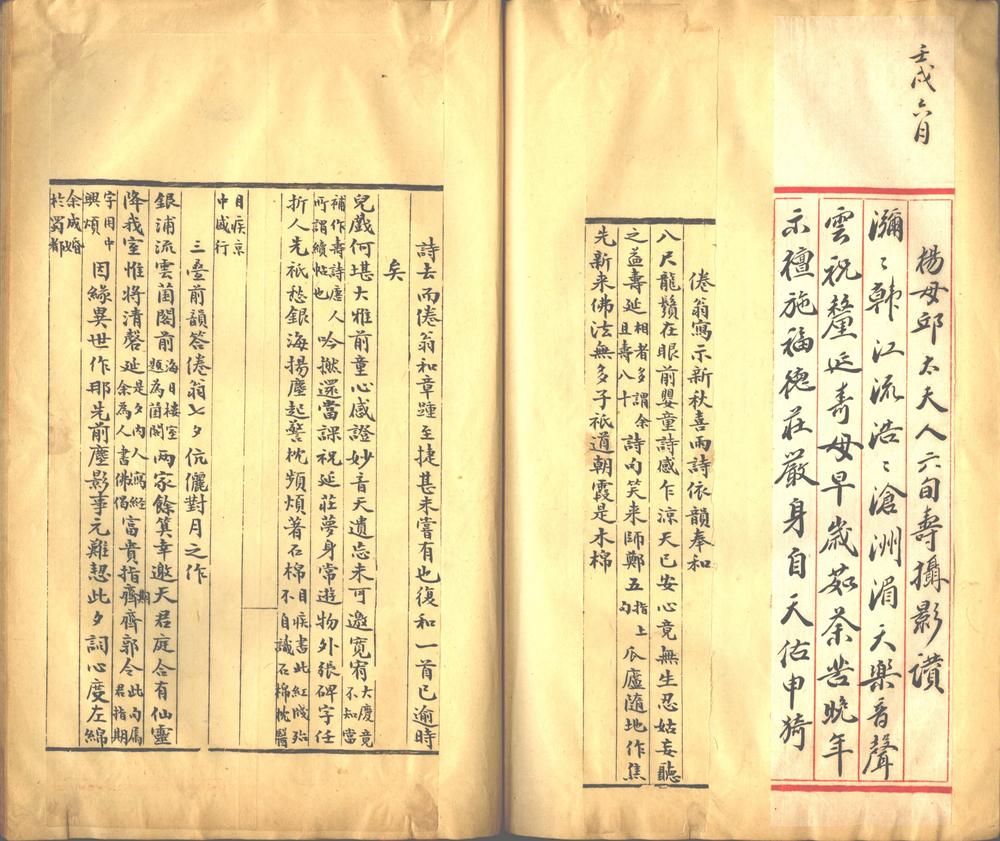 壬戌六月
楊母邱太夫人六旬壽攝影讚
瀰〻韓江流浩〻滄洲湄天樂音聲
雲祝釐延壽母早歲茹荼苦晚年
示檀施福德莊嚴身自天佑申猗
倦翁寫示新秋喜雨詩依韻奉和
八尺龍鬚在眼前嬰童詩感乍涼天已安心竟無生忍姑妄聽
之益壽延相者多謂余且壽八十詩內笑来師鄭五指上句瓜廬随地作焦
先新来佛法無多子祇道朝霞是木棉
詩去而倦翁和章踵至捷甚未嘗有也復和一首已逾時
矣
兒戲何堪大雅前童心感證妙音天遺忘未可邀寬宥大慶竟不知當
補作壽詩唐人所謂續帖也吟撚還當課祝延莊夢身常遊物外張碑字任
折人先祇愁銀海揚塵起警枕頻煩著石棉目疾書此紅成殆不自識石棉枕醫
目疾京中盛行
三疊前韻答倦翁七夕伉儷對月之作
銀浦流雲菌閣前海日樓室題為菌閣兩家餘箕幸邀天君庭合有仙靈
降我室惟将清磬延是夕內人寫經余為人書佛偈富貴指期齊郭令此句属君指期
字用中興煩因緣異世作那先前塵影事元難恝此夕詞心度左綿
余成婚於蜀都